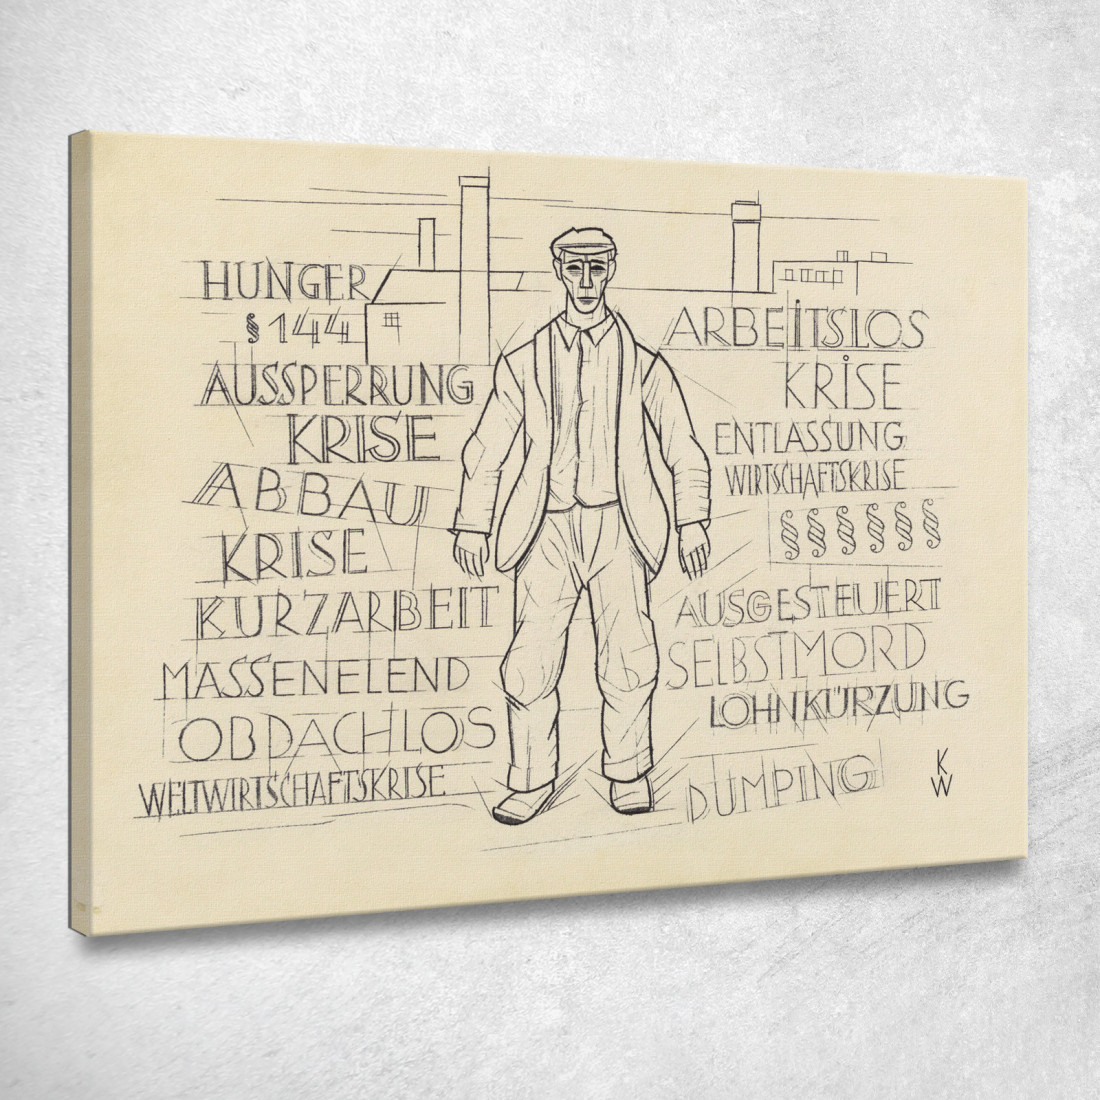 HUNGER
§ 144
AUSSPERRUNG
KRISE
ABBAU
KRISE
KURZARBEIT
MASSENELEND
OBDACHLOS
WELTWIRTSCHAFTSKRISE
ARBEITSLOS
KRISE
ENTLASSUNG
WIRTSCHAFTSKRISE
§§§§§§
AUSGESTEUERT
SELBSTMORD
LOHNKÜRZUNG
DUMPING
K
W